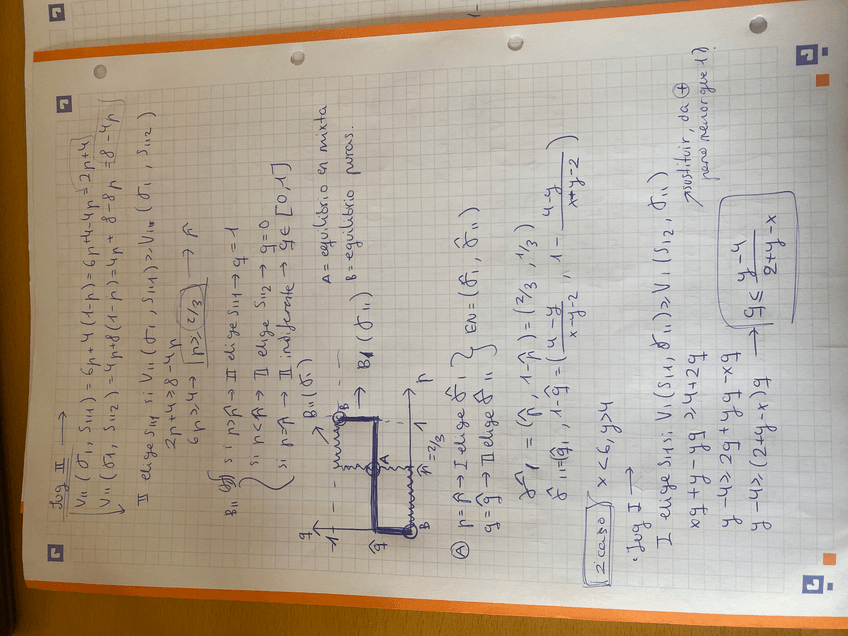 Jug II →
V_II (σ_I, S_II1) = 6p + 4(1-p) = 6p+4-4p = 2p+4
V_II (σ_I, S_II2) = 4p+8(1-p) = 4p + 8-8p = 8-4p
II elige S_II1 si V_II (σ_I, S_II1) ≥ V_II (σ_I, S_II2)
2p+4 ≥ 8-4p
6p ≥ 4 → p ≥ 2/3 → p̂
B_II
si p > p̂ → II elige S_II1 → q = 1
si p < p̂ → II elige S_II2 → q = 0
si p = p̂ → II indiferente → q ∈ [0,1]
q
1
q̂
B_II (σ_I)
B
A
B
B_I (σ_II)
p̂=2/3
1
p
A = equilibrio en mixta
B = equilibrio puras.
A p = p̂ → I elige σ̂_I
q = q̂ → II elige σ̂_II
EN = (σ̂_I, σ̂_II)
σ̂_I = (p̂, 1-p̂) = (2/3, 1/3)
σ̂_II = (q̂, 1-q̂) = (4-y / x-y-2, 1 - 4-y / x+y-2)
2 caso x<6, y>4
· Jug I →
I elige S_I1 si V_I (S_I1, σ_II) ≥ V_I (S_I2, σ_II)
xq + y - yq ≥ 4+2q
y-4 ≥ 2q + yq - xq
y-4 ≥ (2+y-x)q → q ≤ y-4 / 2+y-x
sustituir, da ⊕
pero menor que 1?